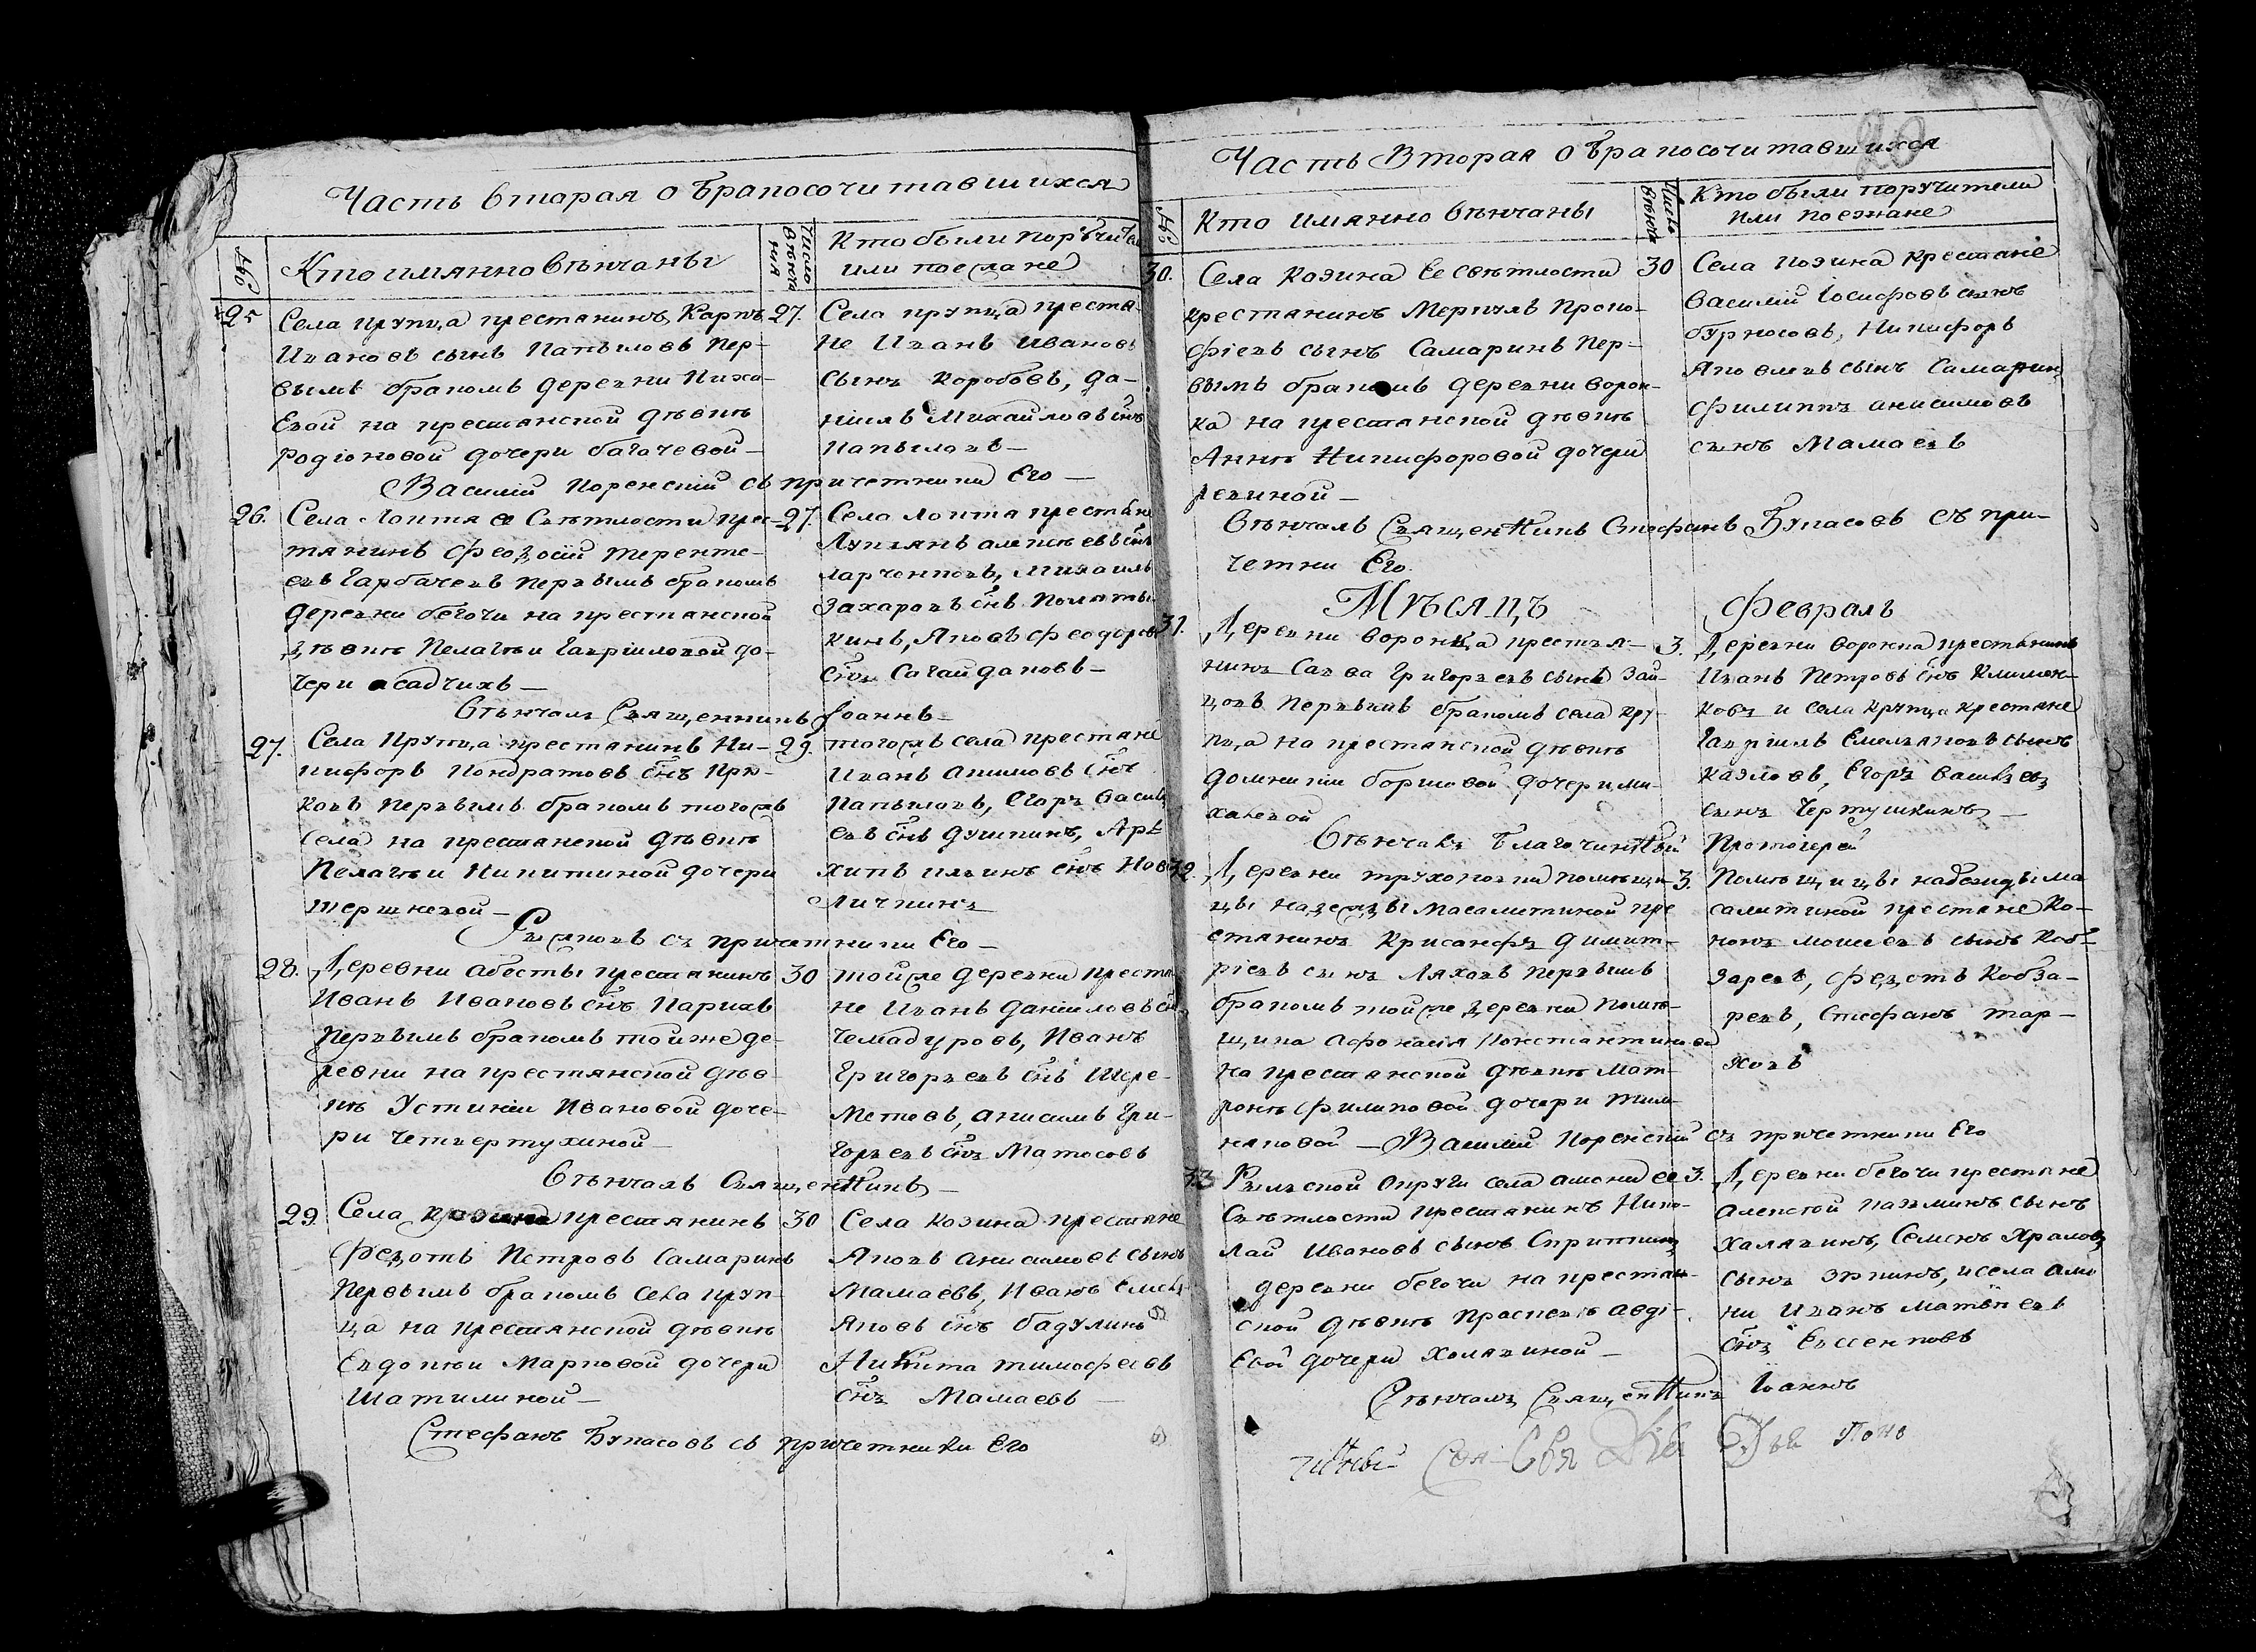 Часть вторая о бракосочитавшихся
№
Кто имянно венчаны
Число венчания
Кто были поручители или поезжане
25
Села крупца крестянинъ Карпъ
Ивановъ сынъ Капыловъ пер-
вымъ бракомъ деревни
на крестянской девкѣ
родіоновой дочери багачевой
27.
Села крупца крестя-
не Иванъ Ивановъ
сынъ Коробовъ, да-
нилъ Михайловъ снъ
Капыловъ
Василій Коренскій съ причетники Его
26.
Села Локтя Ея Светлости крес-
тянинъ Феодосій Терентe-
евъ Гарбачевъ первымъ бракомъ
деревни бегочи на крестянской
девкѣ Пелагѣи Гавриловой до-
чери асадчихъ
27.
Села Локтя крестяне
Лукіянъ алексѣевъ снъ
ларчонковъ, Михаилъ
Захаровъ снъ
кинъ, Яковъ Феодоровъ
снъ Сагайдаковъ
Вѣнчалъ Священникъ Іоаннъ
27.
Села Крупца крестянинъ Ни-
кифоръ Кондратовъ снъ Крю-
ковъ первымъ бракомъ тогожъ
села на крестянской девкѣ
Пелагѣи Никитиной дочери
терш невой
29.
тогожъ села крестяне
Иванъ акимовъ снъ
Капыловъ, Егоръ васил
евъ снъ душкинъ, Ар
хипъ
личкинъ
съ причетники Его
28.
Деревни абесты крестянинъ
Иванъ Ивановъ снъ Карихъ
первымъ бракомъ тойже де-
ревни на крестянской дев-
кѣ Устиніи Ивановой доче-
ри Четвертухиной
30
тойже деревни крестя
не Иванъ даниловъ снъ
Чемадуровъ, Иванъ
Григорьевъ снъ Шере-
метовъ, анисимъ Гри-
горьевъ снъ Матосовъ
Вѣнчалъ Священникъ
29.
Села козина крестянинъ
Федотъ Петровъ Самаринъ
первымъ бракомъ села круп-
ца на крестянской девкѣ
Евдокѣи Марковой дочери
Шатилиной
30
Села козина крестяне
Яковъ анисимовъ сынъ
Мамаевъ, Иванъ Емель
яновъ снъ бадулинъ
Никита тимофеевъ
снъ Мамаевъ
Стефанъ Букасовъ съ причетники Его
Часть Вторая о бракосочитавшихся
20
№
Кто имянно венчаны
Число венча
Кто были поручители
или поезжане
30.
Села козина Ее светлости
крестянинъ Меркулъ Проко-
фіевъ сынъ Самаринъ пер-
вымъ бракомъ деревни ворон-
ка на крестянской девкѣ
Аннѣ Никифоровой дочери
ревиной
30
Села козина крестяне
Василій Іосифовъ сынъ
бурносовъ, Никифоръ
Яковлевъ сынъ Самарин
филиппъ анисимовъ
сынъ Мамаевъ
Вѣнчалъ Священникъ Стефанъ Букасовъ съ при-
четни Его
Мѣсяцъ Февраль
31.
Деревни воронка крестья-
нинъ Савва Григорьевъ сынъ Зай-
цовъ первымъ бракомъ села кру-
пца на крестянской девкѣ
домникіи борисовой дочери ми-
халевой
3.
Деревни воронка крестянинъ
Иванъ Петровъ снъ Климен-
ковъ и села крупца крестяне
Гавріилъ Емельяновъ сынъ
казловъ, Егоръ васильевъ
сынъ Чертушкинъ
Вѣнчалъ Благочинный Протоіерей
32.
Деревни труханова помѣщи-
цы надежды масалитиной кре
стянинъ Крисанфъ димит-
ріевъ сынъ Ляховъ первымъ
бракомъ тойже деревни помѣ-
щика афонасія Константинова
на крестянской девкѣ Мат-
ронѣ филиповой дочери
наковой — Василій Коренскій съ причетники Его
3.
Помѣщицы надежды ма
салитиной крестяне Ко-
нонъ моисеевъ сынъ Коб-
заревъ, федотъ Кобза-
ревъ, Стефанъ тар-
ховъ
33
Рыльской округи села амони ее
Светлости крестянинъ Нико-
лай Ивановъ сынъ Скрипкинъ
деревни бегочи на крестян-
ской девкѣ Прасковѣ авді-
евой дочери холявиной
3.
Деревни бегочи крестяне
алексѣй казминъ сынъ
халявинъ, Семенъ
сынъ зюкинъ, и села амо
ни Иванъ матвѣевъ
снъ Евсенковъ
Вѣнчалъ Священникъ Іоаннъ